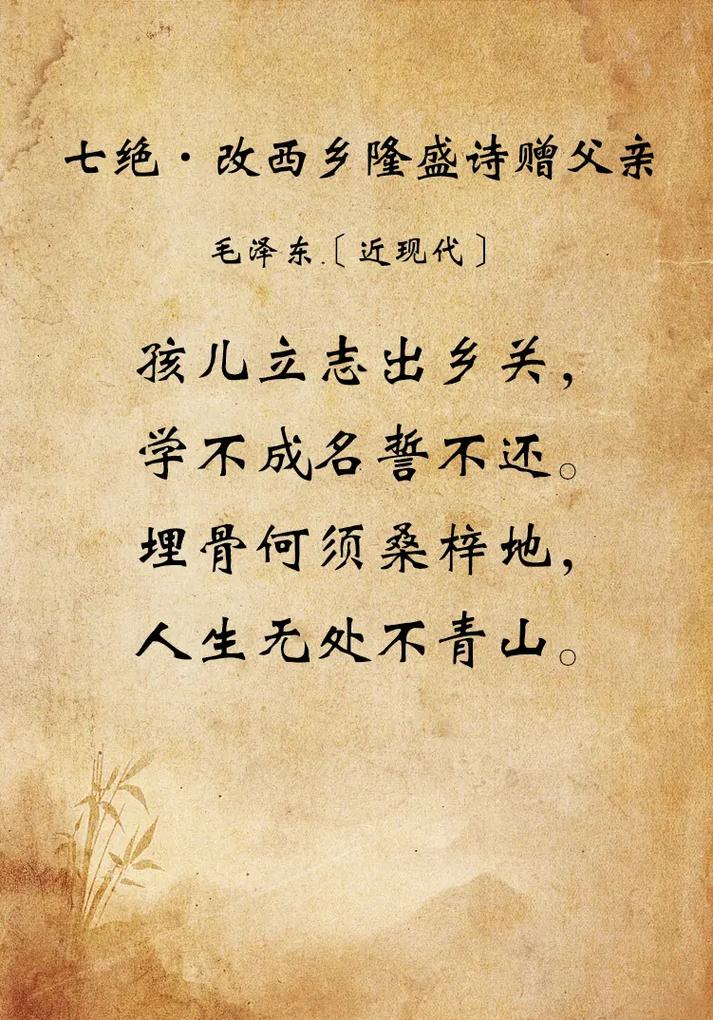 七绝·改西乡隆盛诗赠父亲
毛泽东.〔近现代〕
孩儿立志出乡关，
学不成名誓不还。
埋骨何须桑梓地，
人生无处不青山。